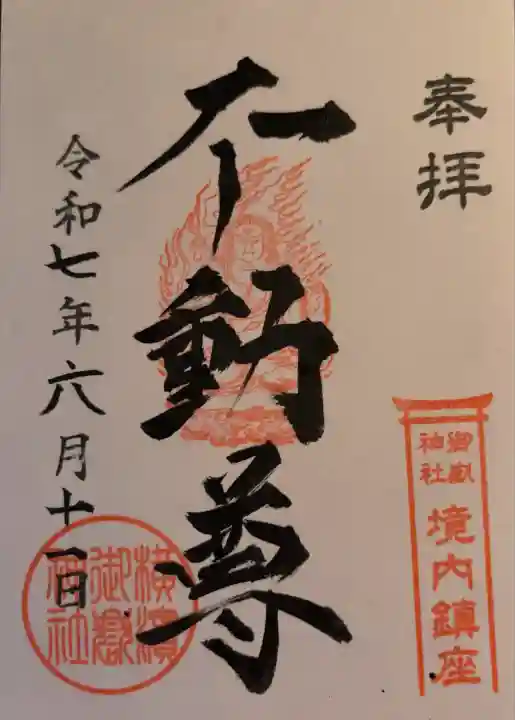 奉拝
御嶽
神社
境内鎮座
不動尊
令和七年六月十一日
横濱
御嶽
神社